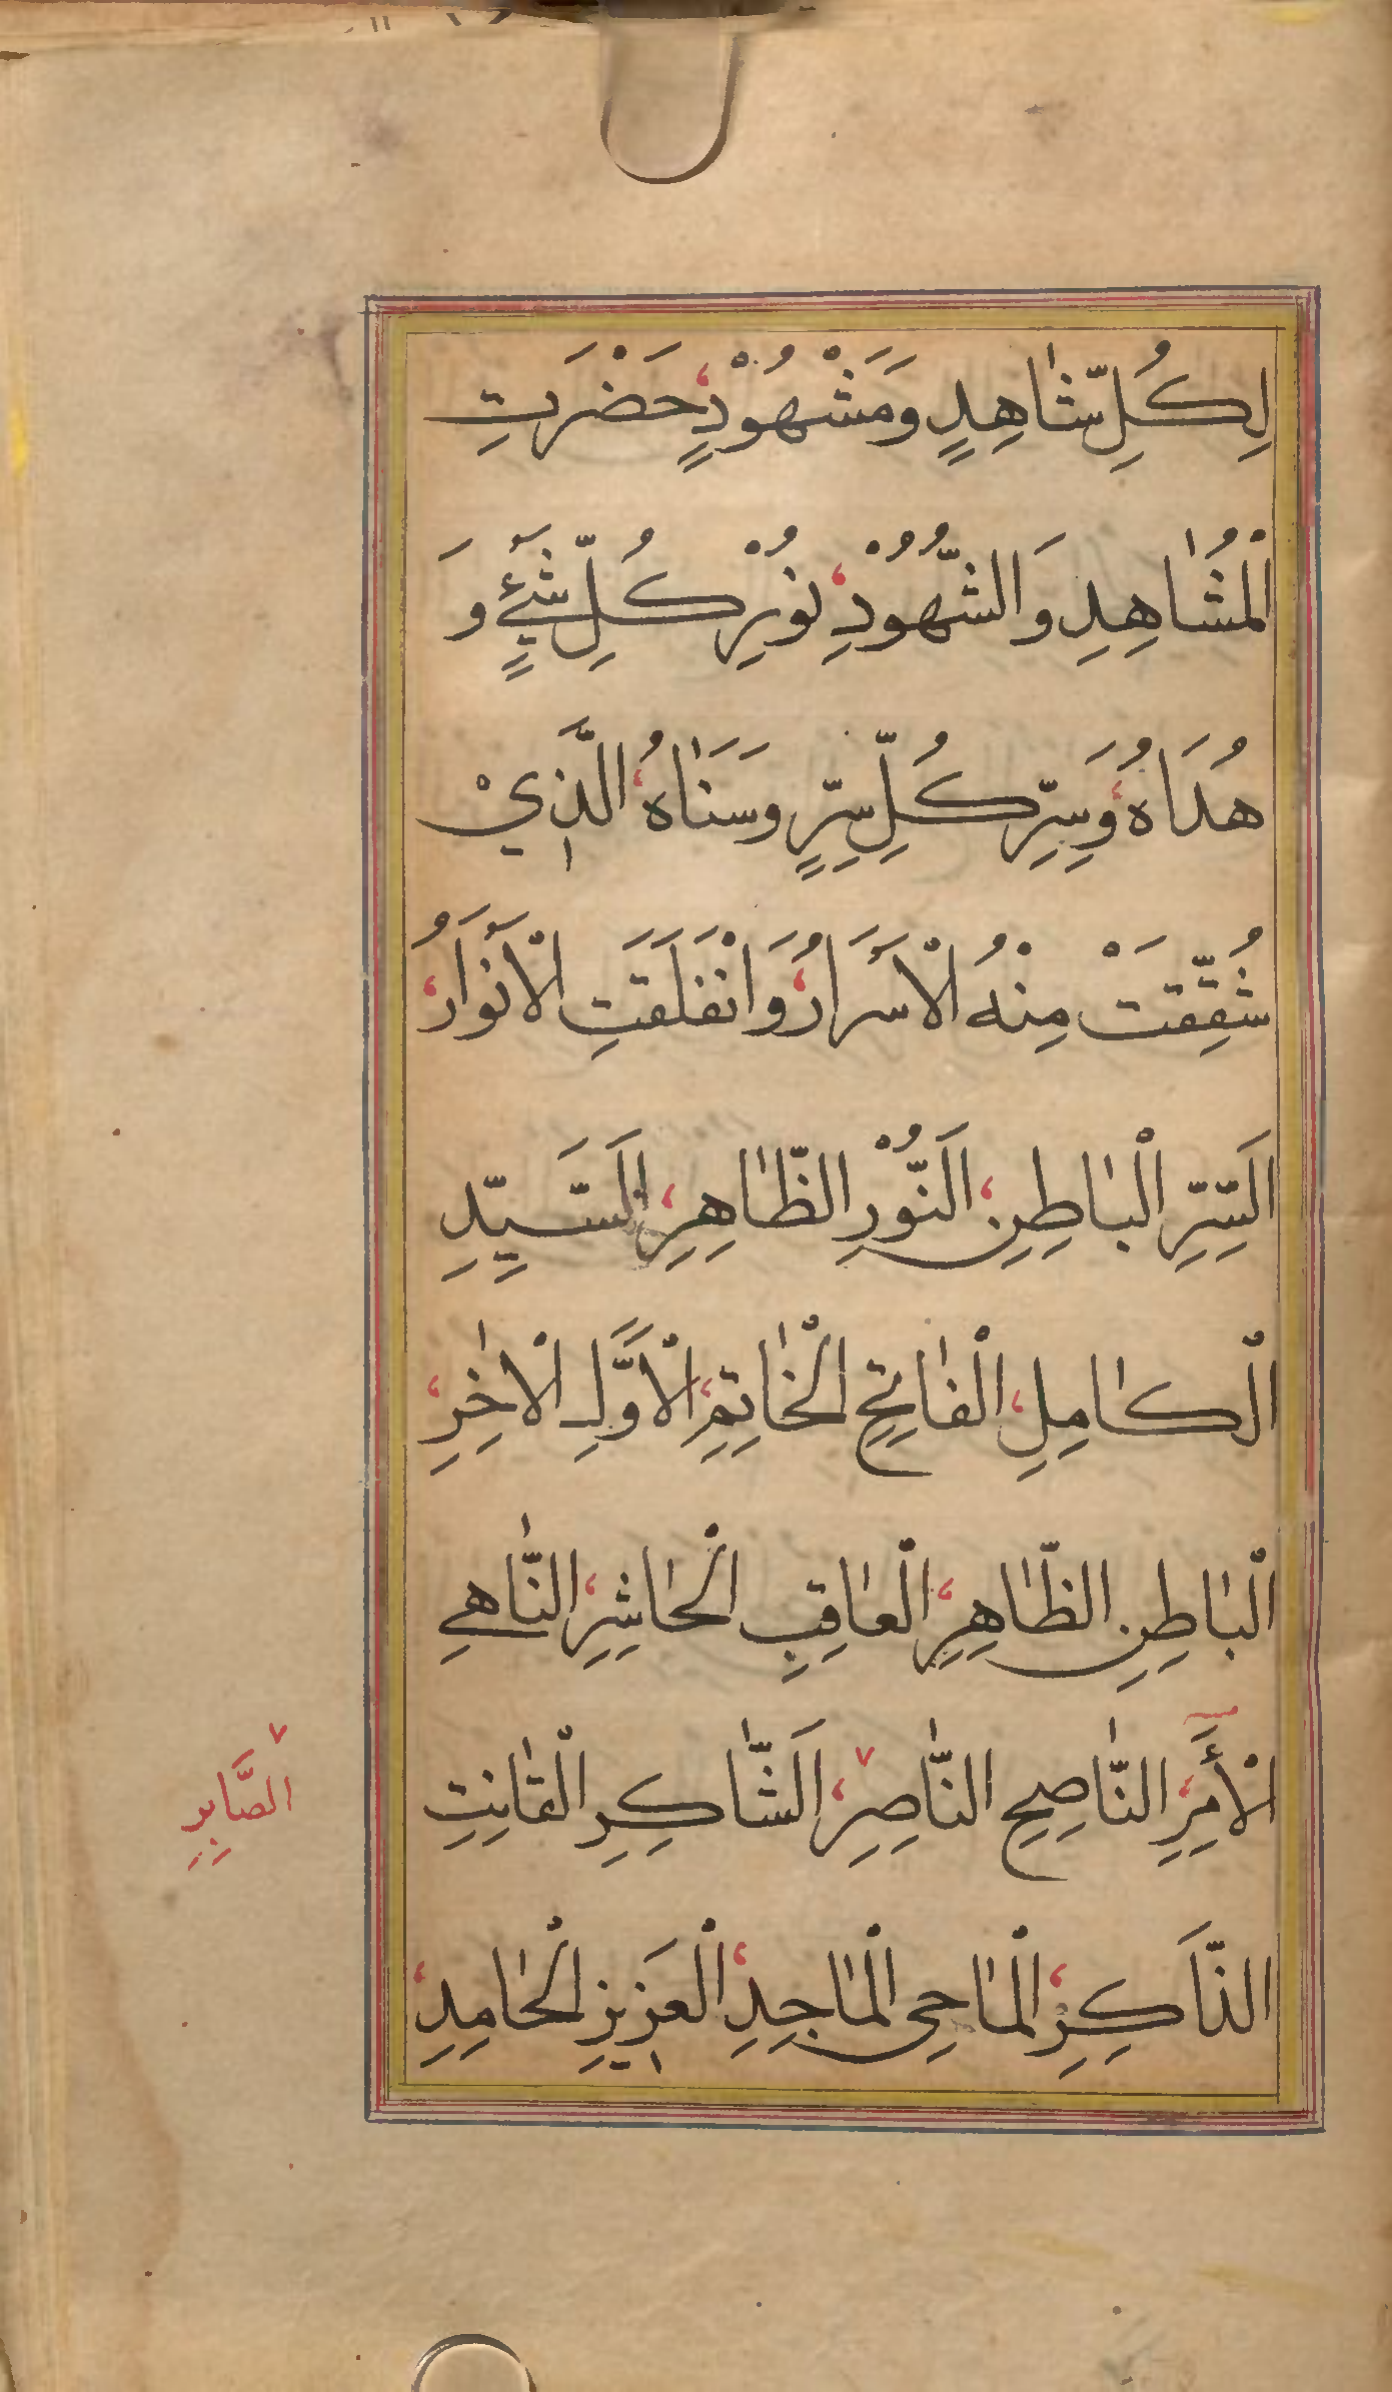 لِكُلِّ شَاهِدٍ وَمَشْهُوْدٍ، حَضْرَتِ
الْمُشَاهِدِ وَالشُّهُوْدِ، نُوْرِ كُلِّ شَيْءٍ وَ
هُدَاهُ، وَسِرِّ كُلِّ سِرٍّ وَسَنَاهُ، الَّذِيْ
شُقِّقَتْ مِنْهُ الْأَسْرَارُ، وَانْفَلَقَتِ الْأَنْوَارُ،
اَلسِّرِّ الْبَاطِنِ، اَلنُّوْرِ الظَّاهِرِ، اَلسَّيِّدِ
الْكَامِلِ، الْفَاتِحِ الْخَاتِمِ، الْأَوَّلِ الْاٰخِرِ،
الْبَاطِنِ الظَّاهِرِ، الْعَاقِبِ الْحَاشِرِ، النَّاهِي
الْأٓمِرِ، النَّاصِحِ النَّاصِرِ، ٧ اَلشَّاكِرِ الْقَانِتِ
٧
الصَّابِرِ
الذَّاكِرِ، الْمَاحِى الْمَاجِدِ، الْعَزِيزِ الْحَامِدِ،